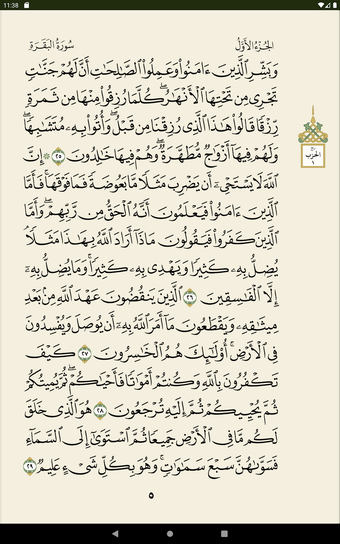 11:38
الجُزْءُ الأَوَّلُ سُورَةُ البَقَرَةِ
وَبَشِّرِ ٱلَّذِينَ ءَامَنُوا۟ وَعَمِلُوا۟ ٱلصَّٰلِحَٰتِ أَنَّ لَهُمْ جَنَّٰتٍ
تَجْرِى مِن تَحْتِهَا ٱلْأَنْهَٰرُ ۖ كُلَّمَا رُزِقُوا۟ مِنْهَا مِن ثَمَرَةٍ
رِّزْقًا ۙ قَالُوا۟ هَٰذَا ٱلَّذِى رُزِقْنَا مِن قَبْلُ ۖ وَأُتُوا۟ بِهِۦ مُتَشَٰبِهًا ۖ
وَلَهُمْ فِيهَآ أَزْوَٰجٌ مُّطَهَّرَةٌ ۖ وَهُمْ فِيهَا خَٰلِدُونَ ٢٥ ۞ إِنَّ
ٱللَّهَ لَا يَسْتَحْىِۦٓ أَن يَضْرِبَ مَثَلًا مَّا بَعُوضَةً فَمَا فَوْقَهَا ۚ فَأَمَّا
ٱلَّذِينَ ءَامَنُوا۟ فَيَعْلَمُونَ أَنَّهُ ٱلْحَقُّ مِن رَّبِّهِمْ ۖ وَأَمَّا
ٱلَّذِينَ كَفَرُوا۟ فَيَقُولُونَ مَاذَآ أَرَادَ ٱللَّهُ بِهَٰذَا مَثَلًا ۘ
يُضِلُّ بِهِۦ كَثِيرًا وَيَهْدِى بِهِۦ كَثِيرًا ۚ وَمَا يُضِلُّ بِهِۦٓ
إِلَّا ٱلْفَٰسِقِينَ ٢٦ ٱلَّذِينَ يَنقُضُونَ عَهْدَ ٱللَّهِ مِنۢ بَعْدِ
مِيثَٰقِهِۦ وَيَقْطَعُونَ مَآ أَمَرَ ٱللَّهُ بِهِۦٓ أَن يُوصَلَ وَيُفْسِدُونَ
فِى ٱلْأَرْضِ ۚ أُو۟لَٰٓئِكَ هُمُ ٱلْخَٰسِرُونَ ٢٧ كَيْفَ
تَكْفُرُونَ بِٱللَّهِ وَكُنتُمْ أَمْوَٰتًا فَأَحْيَٰكُمْ ۖ ثُمَّ يُمِيتُكُمْ
ثُمَّ يُحْيِيكُمْ ثُمَّ إِلَيْهِ تُرْجَعُونَ ٢٨ هُوَ ٱلَّذِى خَلَقَ
لَكُم مَّا فِى ٱلْأَرْضِ جَمِيعًا ثُمَّ ٱسْتَوَىٰٓ إِلَى ٱلسَّمَآءِ
فَسَوَّىٰهُنَّ سَبْعَ سَمَٰوَٰتٍ ۚ وَهُوَ بِكُلِّ شَىْءٍ عَلِيمٌ ٢٩
٥